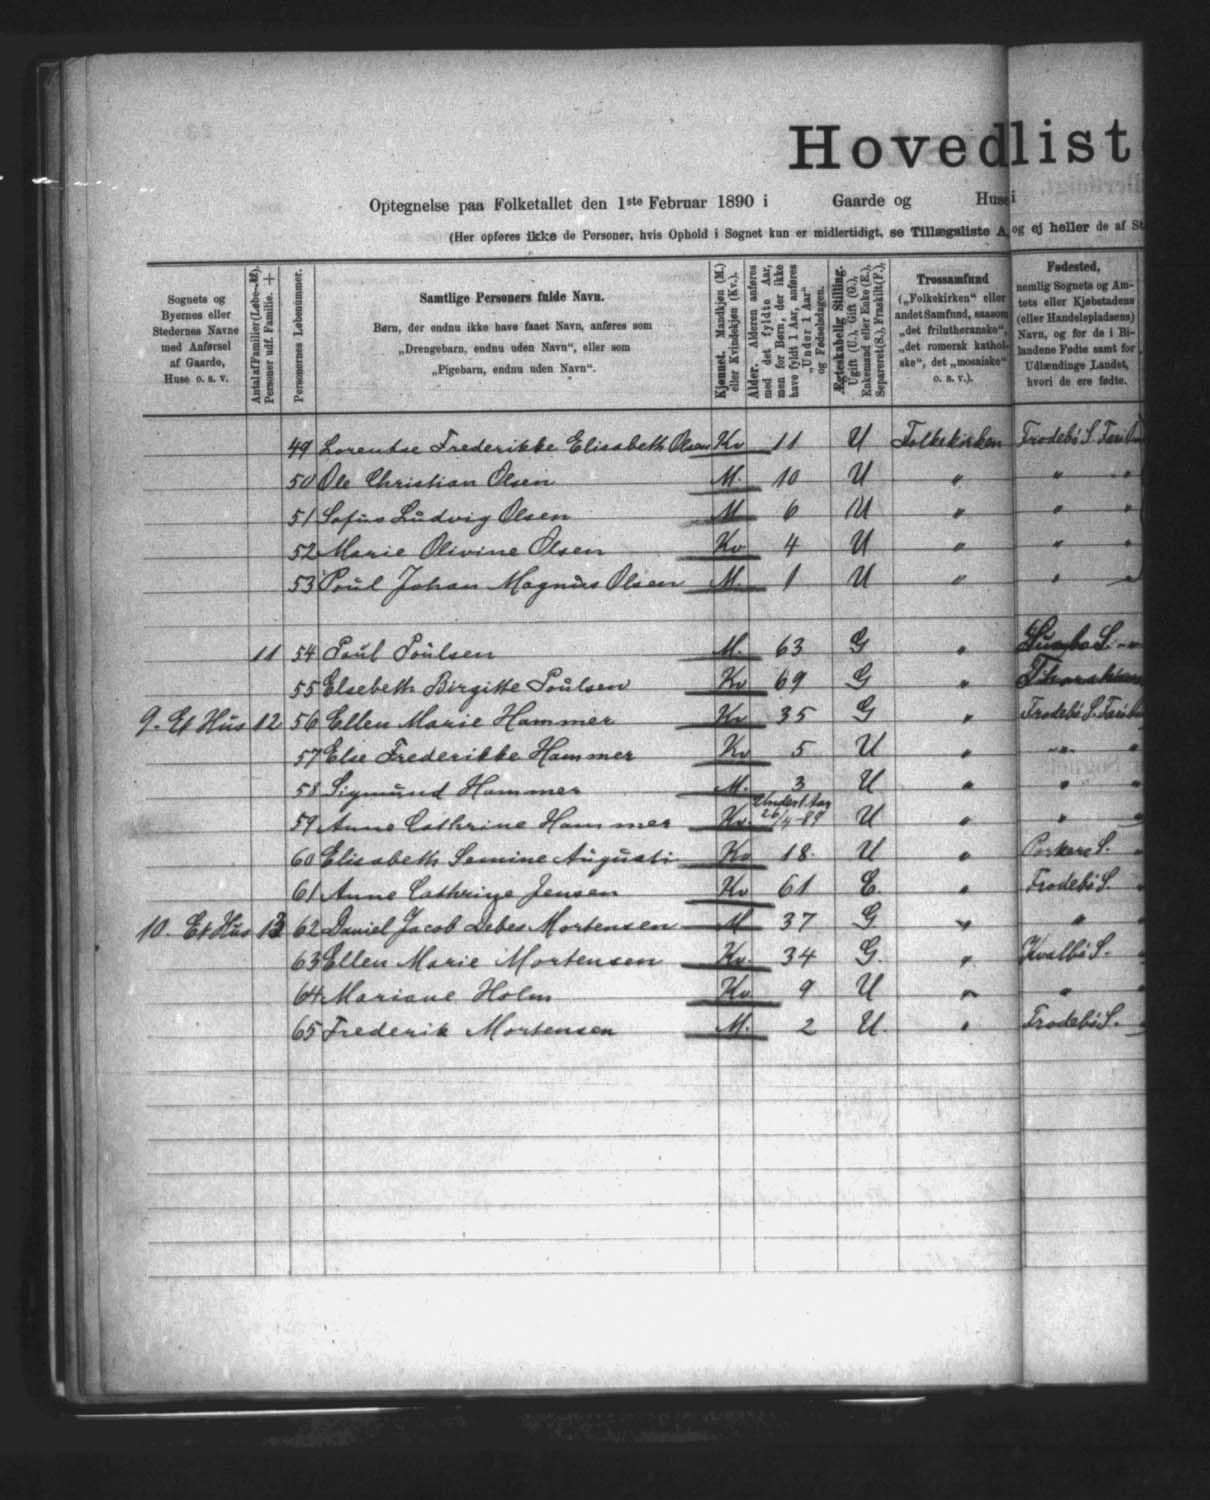 Hovedlist
Optegnelse paa Folketallet den 1ste Februar 1890 i Gaarde og Huse i
(Her opføres ikke de Personer, hvis Ophold i Sognet kun er midlertidigt, se Tillægsliste A, og ej heller de af St
Sognets og
Byernes eller
Stedernes Navne
med Anførsel
af Gaarde,
Huse o. s. v.
Antal af Familier (Løbe-№).
Personer udf. Familie. +
Personernes Løbenummer.
Samtlige Personers fulde Navn.
Børn, der endnu ikke have faaet Navn, anføres som
„Drengebarn, endnu uden Navn“, eller som
„Pigebarn, endnu uden Navn“.
Kjønnet. Mandkjøn (M.)
eller Kvindekjøn (Kv.).
Alder. Alderen anføres
med det fyldte Aar,
men for Børn, der ikke
have fyldt 1 Aar, anføres
„Under 1 Aar“
og Fødselsdagen.
Ægteskabelig Stilling.
Ugift (U.), Gift (G.),
Enkemand eller Enke (E.),
Separeret (S.), Fraskilt (F.).
Trossamfund
(„Folkekirken“ eller
andet Samfund, saasom
„det frilutheranske“,
„det romersk kathol-
ske“, det „mosaiske“
o. s. v.).
Fødested,
nemlig Sognets og Am-
tets eller Kjøbstadens
(eller Handelspladsens)
Navn, og for de i Bi-
landene Fødte samt for
Udlændinge Landet,
hvori de ere fødte.
49 Lorentse Frederikke Elisabeth Olsen Kv 11 U Folkekirken Frodebø S.
50 Ole Christian Olsen M. 10 U " " "
51 Sofus Ludvig Olsen M 6 U " " "
52 Marie Olivine Olsen Kv 4 U " " "
53 Poul Johan Magnus Olsen M. 1 U " " "
11 54 Poul Poulsen M. 63 G " Sumbø S. "
55 Elsebeth Birgitte Poulsen Kv 69 G "
9. Et Hus 12 56 Ellen Marie Hammer Kv 35 G " Frodebø S.
57 Else Frederikke Hammer Kv 5 U " " "
58 Sigmund Hammer M. 3 U " " "
59 Anne Cathrine Hammer Kv. Under 1 Aar 26/4-89 U " " "
60 Elisabeth Semine Augusti Kv 18. U " Porkere S. "
61 Anne Cathrine Jensen Kv 61 E. " Frodebø S. "
10. Et Hus 13 62 Daniel Jacob Debes Mortensen M 37 G " " "
63 Ellen Marie Mortensen Kv. 34 G. " Kvalbø S. "
64 Mariane Holm Kv 9 U " " "
65 Frederik Mortensen M. 2 U. " Frodebø S.